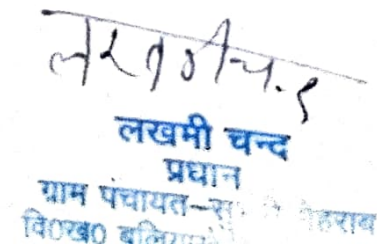 लखमीचन्द
लखमी चन्द
प्रधान
ग्राम पंचायत-
वि०ख०